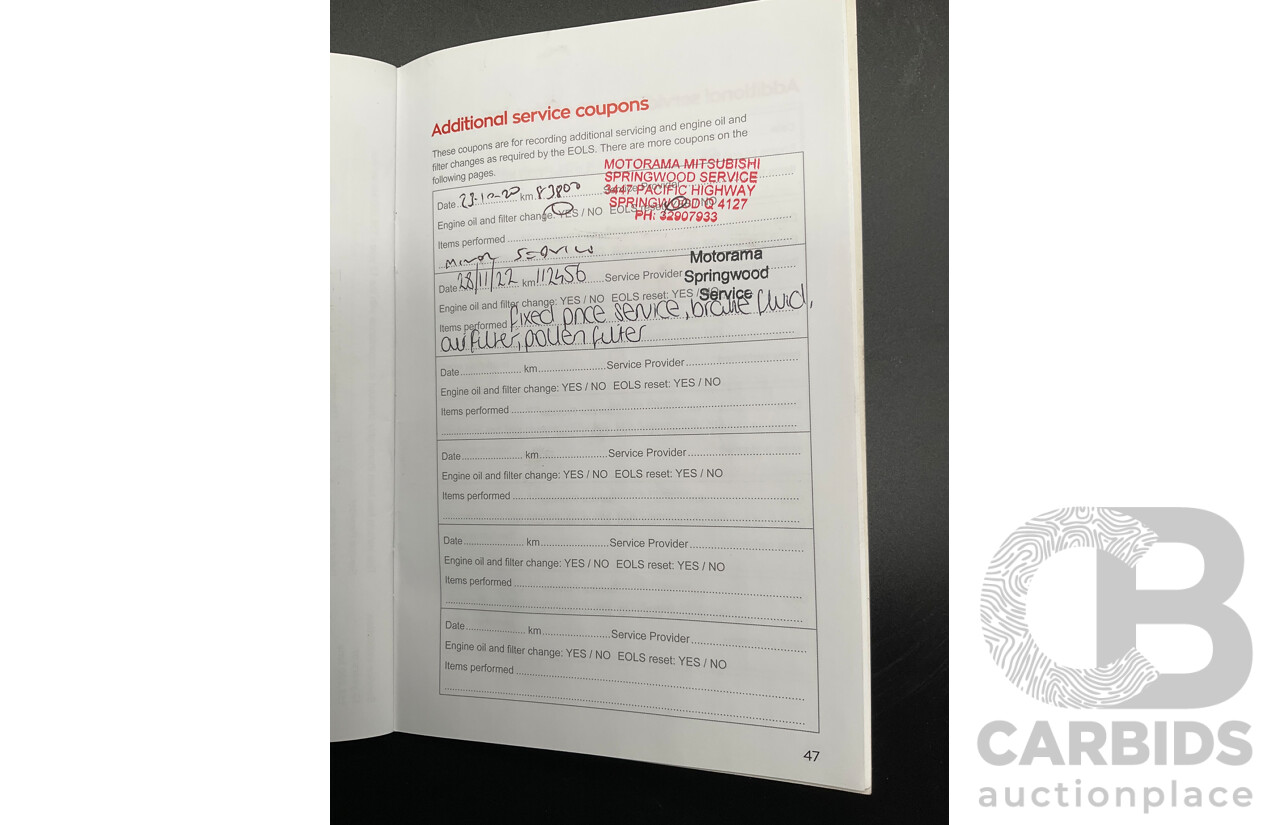 Additional service coupons
These coupons are for recording additional servicing and engine oil and
filter changes as required by the EOLS. There are more coupons on the
following pages.
MOTORAMA MITSUBISHI
SPRINGWOOD SERVICE
3447 PACIFIC HIGHWAY
SPRINGWOOD Q 4127
PH: 32907933
Date 23-10-20 km 83800 Service Provider
Engine oil and filter change: YES / NO EOLS reset: YES / NO
Items performed
Minor Service
Motorama
Springwood
Service
Date 28/11/22 km 112456 Service Provider
Engine oil and filter change: YES / NO EOLS reset: YES / NO
Items performed fixed price service, brake fluid,
air filter, pollen filter
Date km Service Provider
Engine oil and filter change: YES / NO EOLS reset: YES / NO
Items performed
Date km Service Provider
Engine oil and filter change: YES / NO EOLS reset: YES / NO
Items performed
Date km Service Provider
Engine oil and filter change: YES / NO EOLS reset: YES / NO
Items performed
Date km Service Provider
Engine oil and filter change: YES / NO EOLS reset: YES / NO
Items performed
47
CB
CARBIDS
auctionplace